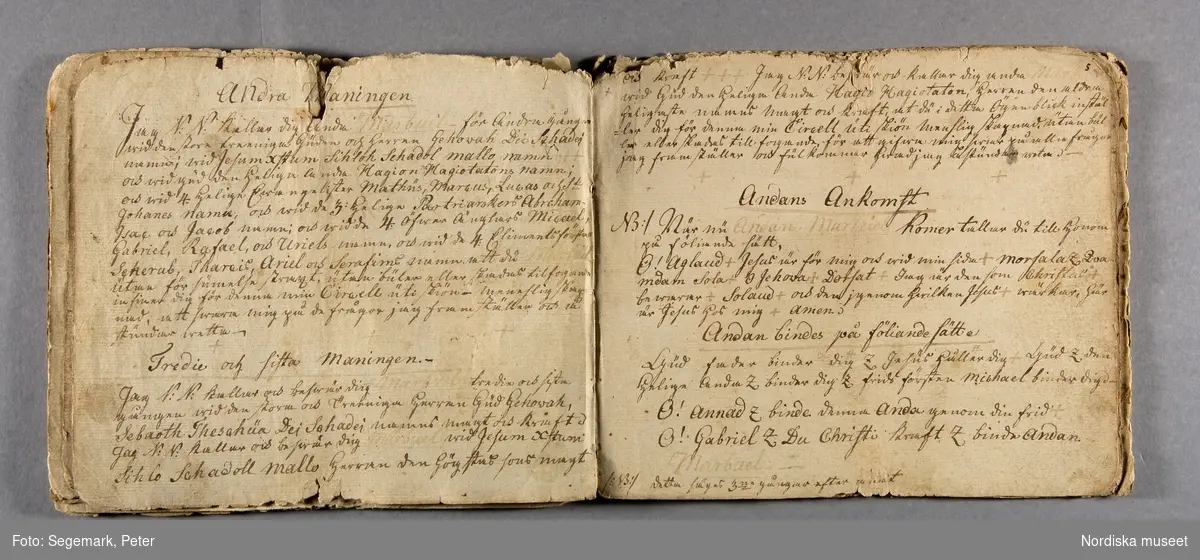 Andra Maningen
Jag N: N. kallar dig Anda Marbuel för Andra gången
wid den store treeniga Guden och Herren Gehovah Dei Schadej
namn; wid Jesum Xstum Schloh Schadol mallo namn
och wid Gud den helige anda Hagion Hagiotatons namn;
och wid 4 helige Evangelister Mathäus, Marcus, Lucas och St
Johanes namn, och wid de 3: helige Partriankers Abraham
Isac och Jacob namn; och wid de 4 öfwer Änglars Micael,
Gabriel, Rafael, och Uriels namn, och wid de 4 Eliments
Scherub, Tharcis, Ariel och Serafims namn att du
utan försumelse strazt, utan buler eller skadas tilfogande
infiner dig för denna min Circell uti skiön menshlig skap
nad, att swara mig på de frågor jag fram ställer och å
stundar wetta
Tredie och sista Maningen.-
Jag N: N. kallar och beswär dig tredie och sista
gången wid den stora och treeniga Herren Gud Gehovah
Sebaoth Theschla Dej Schadej namns magt och kraft
Jag N: N. kallar och beswär dig wid Jesum Xstum
Schlo Schadoll mallo Herren den högstas sons magt
5
och kraft + + + Jag N. N. beswär och kallar dig anda
wid Gud den heliga Anda Hagio Hagiotaton, Herren den aldra
heligaste namns magt och kraft, at du i detta Ögenblick instäl
ler dig för denna min Circell uti skiön menshlig skapnad, utan bul
ler eller skadas tillfogande, för att gifwa mig swar på alla frågor
jag framställer och fulkommen hwad jag åstundar weta
Andans Ankomst
NB:/ När nu Andan Marbuel komer tallar du till honom
på föliande sätt,
O! Aglaud + Jesus är för mig och wid min sida + morsala Z
mdam Sola Z Jehova + Dotsat + Jag är den som Christus +
bewarar + Solaud + och den igenom hwilken Jesus + wärkar, här
är Jesus hos mig + Amen.
Andan bindes på föliande sätt
Gud fader binder dig Z Jesus håller dig + Gud Z den
helige Anda Z binder dig Z frids försten Michael binder dig
O! Annad Z binde denna Anda genom din frid +
O! Gabriel Z Du Christi kraft Z binde Andan
Marbuel.
/:NB:/ detta säges 3ne gångar efter
Foto: Segemark, Peter
Nordiska museet